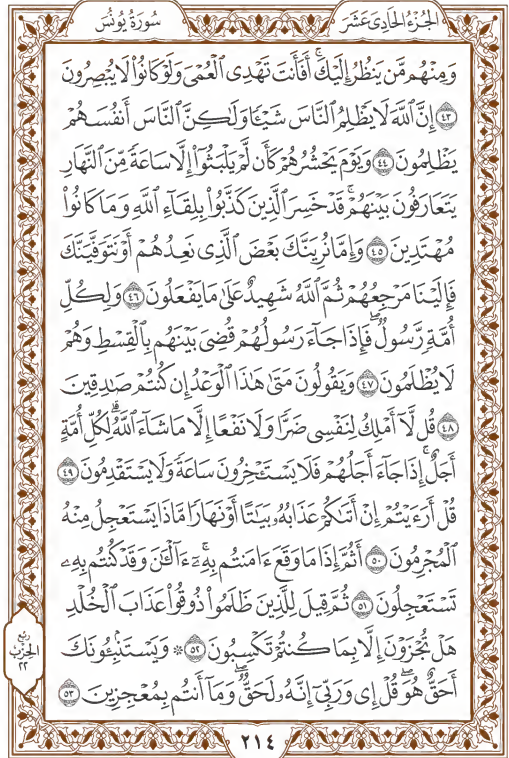 الجُزْءُ الحَادِي عَشَرَ
سُورَةُ يُونُسَ
وَمِنْهُم مَّن يَنظُرُ إِلَيْكَۚ أَفَأَنتَ تَهْدِى ٱلْعُمْىَ وَلَوْ كَانُوا۟ لَا يُبْصِرُونَ
٤٣ إِنَّ ٱللَّهَ لَا يَظْلِمُ ٱلنَّاسَ شَيْـًٔا وَلَـٰكِنَّ ٱلنَّاسَ أَنفُسَهُمْ
يَظْلِمُونَ ٤٤ وَيَوْمَ يَحْشُرُهُمْ كَأَن لَّمْ يَلْبَثُوٓا۟ إِلَّا سَاعَةً مِّنَ ٱلنَّهَارِ
يَتَعَارَفُونَ بَيْنَهُمْۚ قَدْ خَسِرَ ٱلَّذِينَ كَذَّبُوا۟ بِلِقَآءِ ٱللَّهِ وَمَا كَانُوا۟
مُهْتَدِينَ ٤٥ وَإِمَّا نُرِيَنَّكَ بَعْضَ ٱلَّذِى نَعِدُهُمْ أَوْ نَتَوَفَّيَنَّكَ
فَإِلَيْنَا مَرْجِعُهُمْ ثُمَّ ٱللَّهُ شَهِيدٌ عَلَىٰ مَا يَفْعَلُونَ ٤٦ وَلِكُلِّ
أُمَّةٍ رَّسُولٌۖ فَإِذَا جَآءَ رَسُولُهُمْ قُضِىَ بَيْنَهُم بِٱلْقِسْطِ وَهُمْ
لَا يُظْلَمُونَ ٤٧ وَيَقُولُونَ مَتَىٰ هَـٰذَا ٱلْوَعْدُ إِن كُنتُمْ صَـٰدِقِينَ
٤٨ قُل لَّآ أَمْلِكُ لِنَفْسِى ضَرًّا وَلَا نَفْعًا إِلَّا مَا شَآءَ ٱللَّهُۗ لِكُلِّ أُمَّةٍ
أَجَلٌۚ إِذَا جَآءَ أَجَلُهُمْ فَلَا يَسْتَـْٔخِرُونَ سَاعَةً وَلَا يَسْتَقْدِمُونَ ٤٩
قُلْ أَرَءَيْتُمْ إِنْ أَتَىٰكُمْ عَذَابُهُۥ بَيَـٰتًا أَوْ نَهَارًا مَّاذَا يَسْتَعْجِلُ مِنْهُ
ٱلْمُجْرِمُونَ ٥٠ أَثُمَّ إِذَا مَا وَقَعَ ءَامَنتُم بِهِۦٓۚ ءَآلْـَٔـٰنَ وَقَدْ كُنتُم بِهِۦ
تَسْتَعْجِلُونَ ٥١ ثُمَّ قِيلَ لِلَّذِينَ ظَلَمُوا۟ ذُوقُوا۟ عَذَابَ ٱلْخُلْدِ
هَلْ تُجْزَوْنَ إِلَّا بِمَا كُنتُمْ تَكْسِبُونَ ٥٢ ۞ وَيَسْتَنۢبِـُٔونَكَ
أَحَقٌّ هُوَۖ قُلْ إِى وَرَبِّىٓ إِنَّهُۥ لَحَقٌّۖ وَمَآ أَنتُم بِمُعْجِزِينَ ٥٣
رُبْع
الحِزْب
٢٢
٢١٤